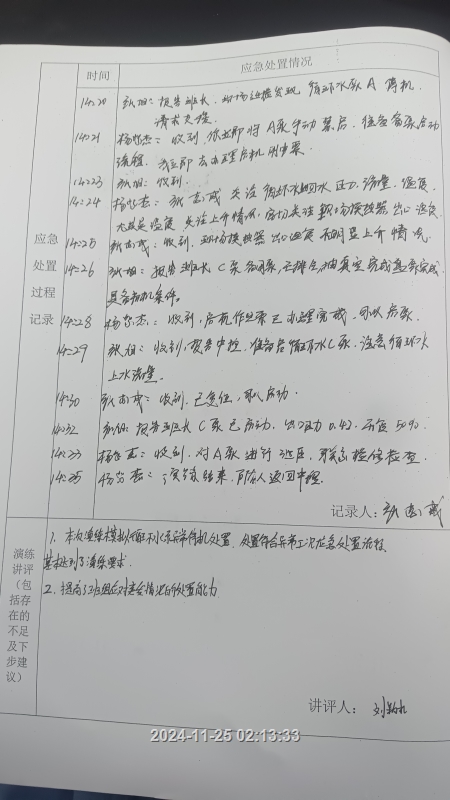 时间
应急处置情况
14:20 张旭：报告班长，现场巡检发现循环水泵A停机，
请求支援。
14:21 收到，你立即将A泵手动禁启，准备备泵启动
流程，我立即去办理启机
14:23 张旭：收到。
14:24 关注循环水回水压力、流量、温度、
关注上升情况，密切关注现场换热器出口温度
14:25 收到，现场换热器出口温度无明显上升情况
14:26 张旭：报告班长C泵备用泵，已排气、抽真空完成盘车完成
具备启机条件。
14:28 收到，启机作业票已办理完成，可以启泵。
14:29 张旭：收到，报告中控，准备启循环水C泵，注意循环水
上水流量。
14:30 收到，已复位，可以启动。
14:32 张旭：报告班长C泵已启动，出口压力0.42，开度50%
14:33 收到，对A泵进行处理，联系检修检查。
14:35 演练结束，所有人返回中控。
应急
处置
过程
记录
记录人：
演练
讲评
（包
括存
在的
不足
及下
步建
议）
1、本次演练模拟循环水泵异常停机处置，处置符合异常工况应急处置流程，
基本达到了演练要求。
2、提高了班组应对突发情况的处置能力
讲评人：
2024-11-25 02:13:33